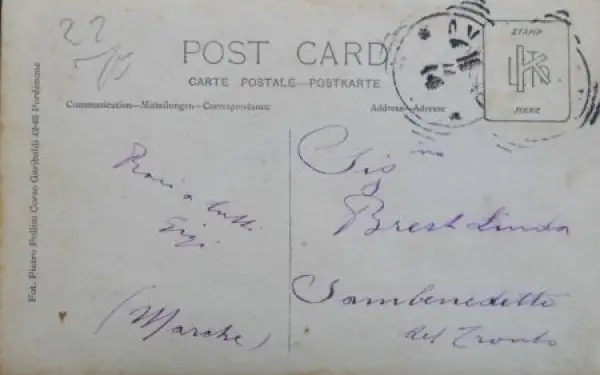 22
POST CARD
CARTE POSTALE—POSTKARTE
Communication—Mitteilungen—Correspondance
Address—Adresse
STAMP
HERE
Fot. Pietro Pollini Corso Garibaldi 42-43 Pordenone
Baci a tutti
Gigi
(Marche)
Sig ina
Brest Linda
Sambenedetto
del Tronto